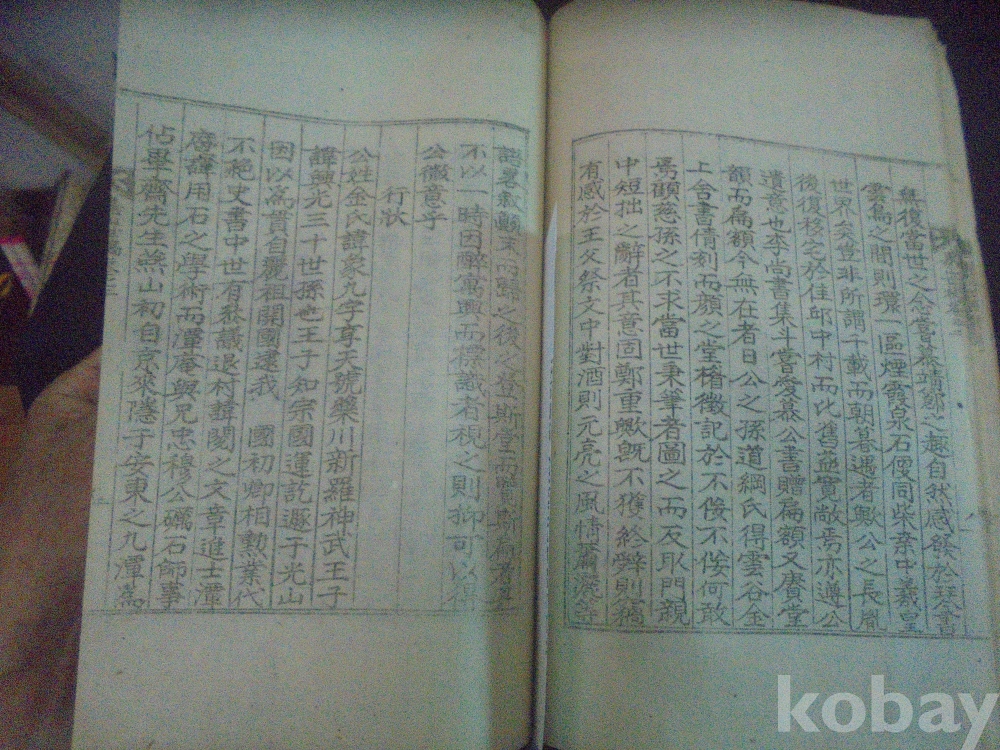 無復當世之念嘗慕靖節之趣自然感發於琴書
雲鳥之間則環一區煙霞泉石便同柴桑中羲皇
世界矣豈非所謂千載而朝暮遇者歟公之長胤
後復移宅於佳邱中村而比舊益寬敞焉亦遵公
遺意也李尚書集斗嘗愛慕公書贈扁額又賡堂
額而扁額今無在者日公之孫道綱氏得雲谷金
上舍書倩刻而顔之堂楣徵記於不佞不佞何敢
焉顧慈孫之不求當世秉筆者圖之而反取門親
中短拙之辭者其意固鄭重歟旣不獲終辭則竊
有感於王父祭文中對酒則元亮之風情蕭灑等
語畧叙顚末而歸之後之登斯堂而覽斯扁者
不以一時因醉寓興而標識者視之則抑可以得
公徽意乎
行狀
公姓金氏諱象九字享天號藥川新羅神武王子
諱興光三十世孫也王子知宗國運訖遯于光山
因以爲貫自麗祖開國逮我 國初卿相勲業代
不絶史書中世有叅議退村諱閱之文章進士潭
庵諱用石之學術而潭庵與兄忠穆公礪石師事
佔畢齋先生燕山初自京來隱于安東之九潭爲
kobay